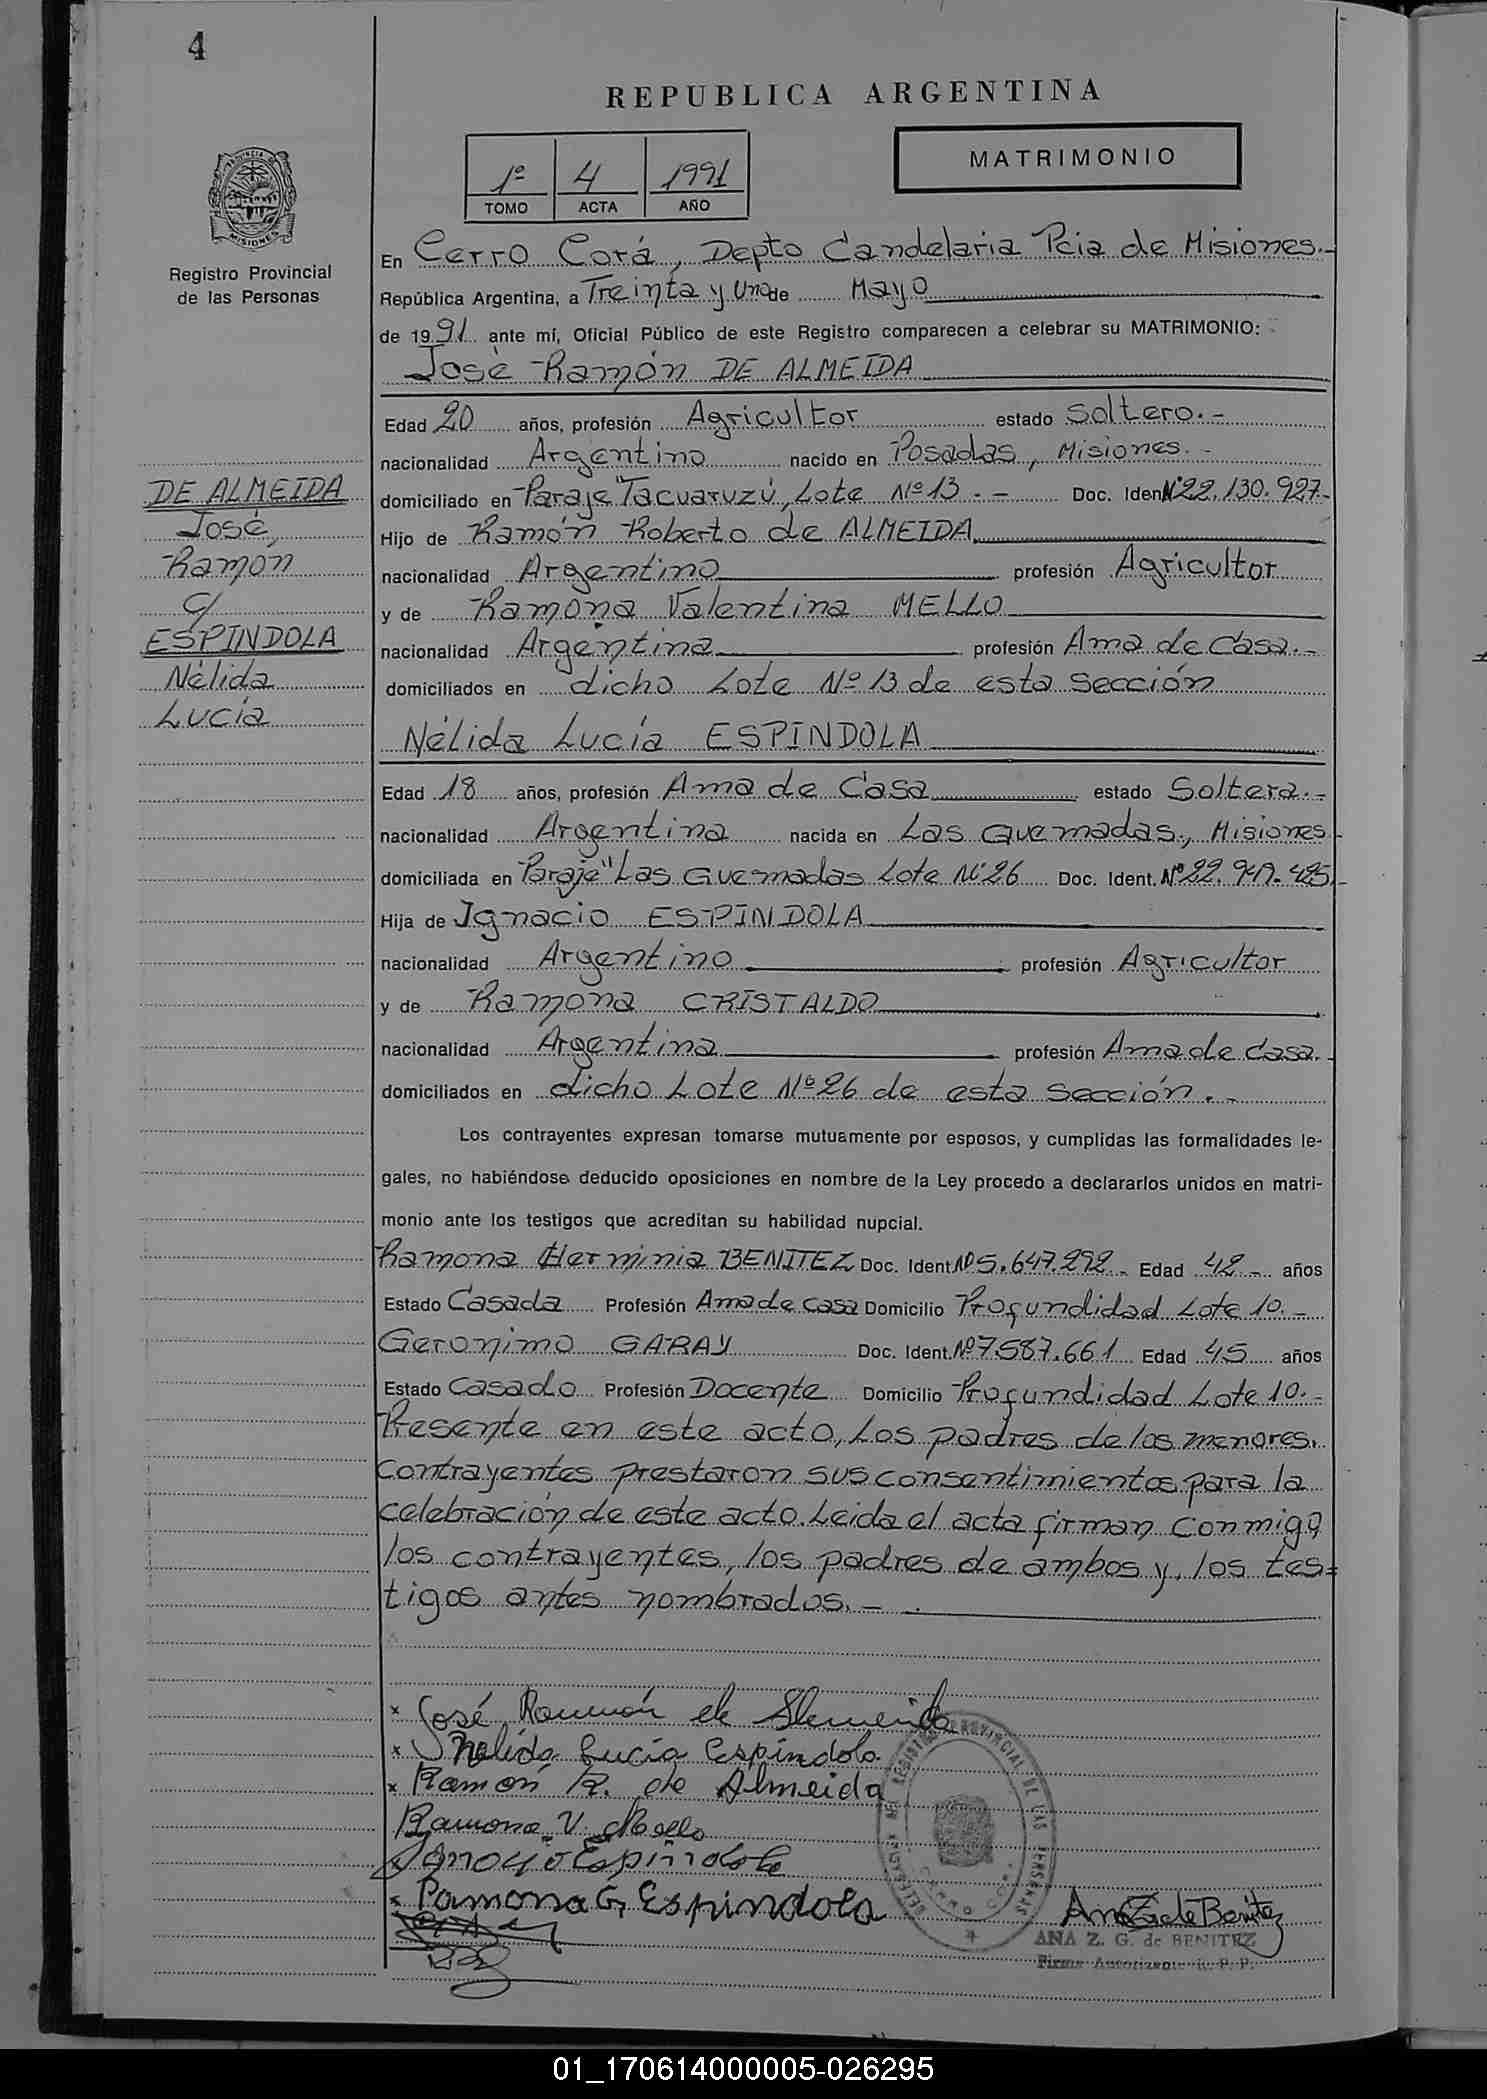 4
REPUBLICA ARGENTINA
MATRIMONIO
1º 4 1991
TOMO ACTA AÑO
PROVINCIA DE MISIONES
Registro Provincial
de las Personas
En Cerro Corá, Depto Candelaria Pcia de Misiones.-
República Argentina, a Treinta y Uno de Mayo
de 1991 ante mí, Oficial Público de este Registro comparecen a celebrar su MATRIMONIO:
José Ramón DE ALMEIDA
Edad 20 años, profesión Agricultor estado Soltero.-
nacionalidad Argentino nacido en Posadas, Misiones.-
domiciliado en Paraje "Tacuaruzú, Lote Nº 13.- Doc. Iden Nº 22.130.927-
Hijo de Ramón Roberto de ALMEIDA
nacionalidad Argentino profesión Agricultor
y de Ramona Valentina MELLO
nacionalidad Argentina profesión Ama de Casa.-
domiciliados en dicho Lote Nº 13 de esta sección
DE ALMEIDA
José,
Ramón
c/
ESPINDOLA
Nélida
Lucía
Nélida Lucía ESPINDOLA
Edad 18 años, profesión Ama de Casa estado Soltera.-
nacionalidad Argentina nacida en Las Quemadas, Misiones
domiciliada en Paraje "Las Quemadas Lote Nº 26 Doc. Ident. Nº 22.
Hija de Ignacio ESPINDOLA
nacionalidad Argentino profesión Agricultor
y de Ramona CRISTALDO
nacionalidad Argentina profesión Ama de Casa.-
domiciliados en dicho Lote Nº 26 de esta sección.-
Los contrayentes expresan tomarse mutuamente por esposos, y cumplidas las formalidades le-
gales, no habiéndose deducido oposiciones en nombre de la Ley procedo a declararlos unidos en matri-
monio ante los testigos que acreditan su habilidad nupcial.
Ramona Herminia BENITEZ Doc. Ident. Nº 5.647.292- Edad 42- años
Estado Casada Profesión Ama de casa Domicilio Profundidad Lote 10.-
Geronimo GARAY Doc. Ident. Nº 7.587.661 Edad 45 años
Estado Casado Profesión Docente Domicilio Profundidad Lote 10.-
Presente en este acto, Los padres de los menores.
contrayentes prestaron sus consentimientos para la
celebración de este acto. Leida el acta firman conmigo
los contrayentes, los padres de ambos y, los tes=
tigos antes nombrados.-
x José Ramón de Almeida
x Nelida Lucia Espindola.
x Ramón R. de Almeida
Ramona V. Mello
x Ignacio Espindola
x Ramona G Espindola
DELEGACION DEL REGISTRO PROVINCIAL DE LAS PERSONAS
CERRO CORA
Ana Z de Benitez
ANA Z. G. de BENITEZ
Firma Autorizante R. P. P.
01_170614000005-026295